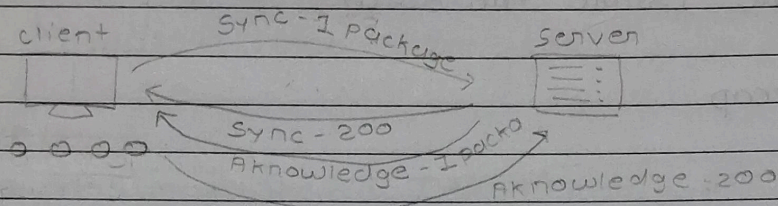 client
Sync - 1 package
Server
Sync - 200
Aknowledge - 1 packa
Aknowledge - 200